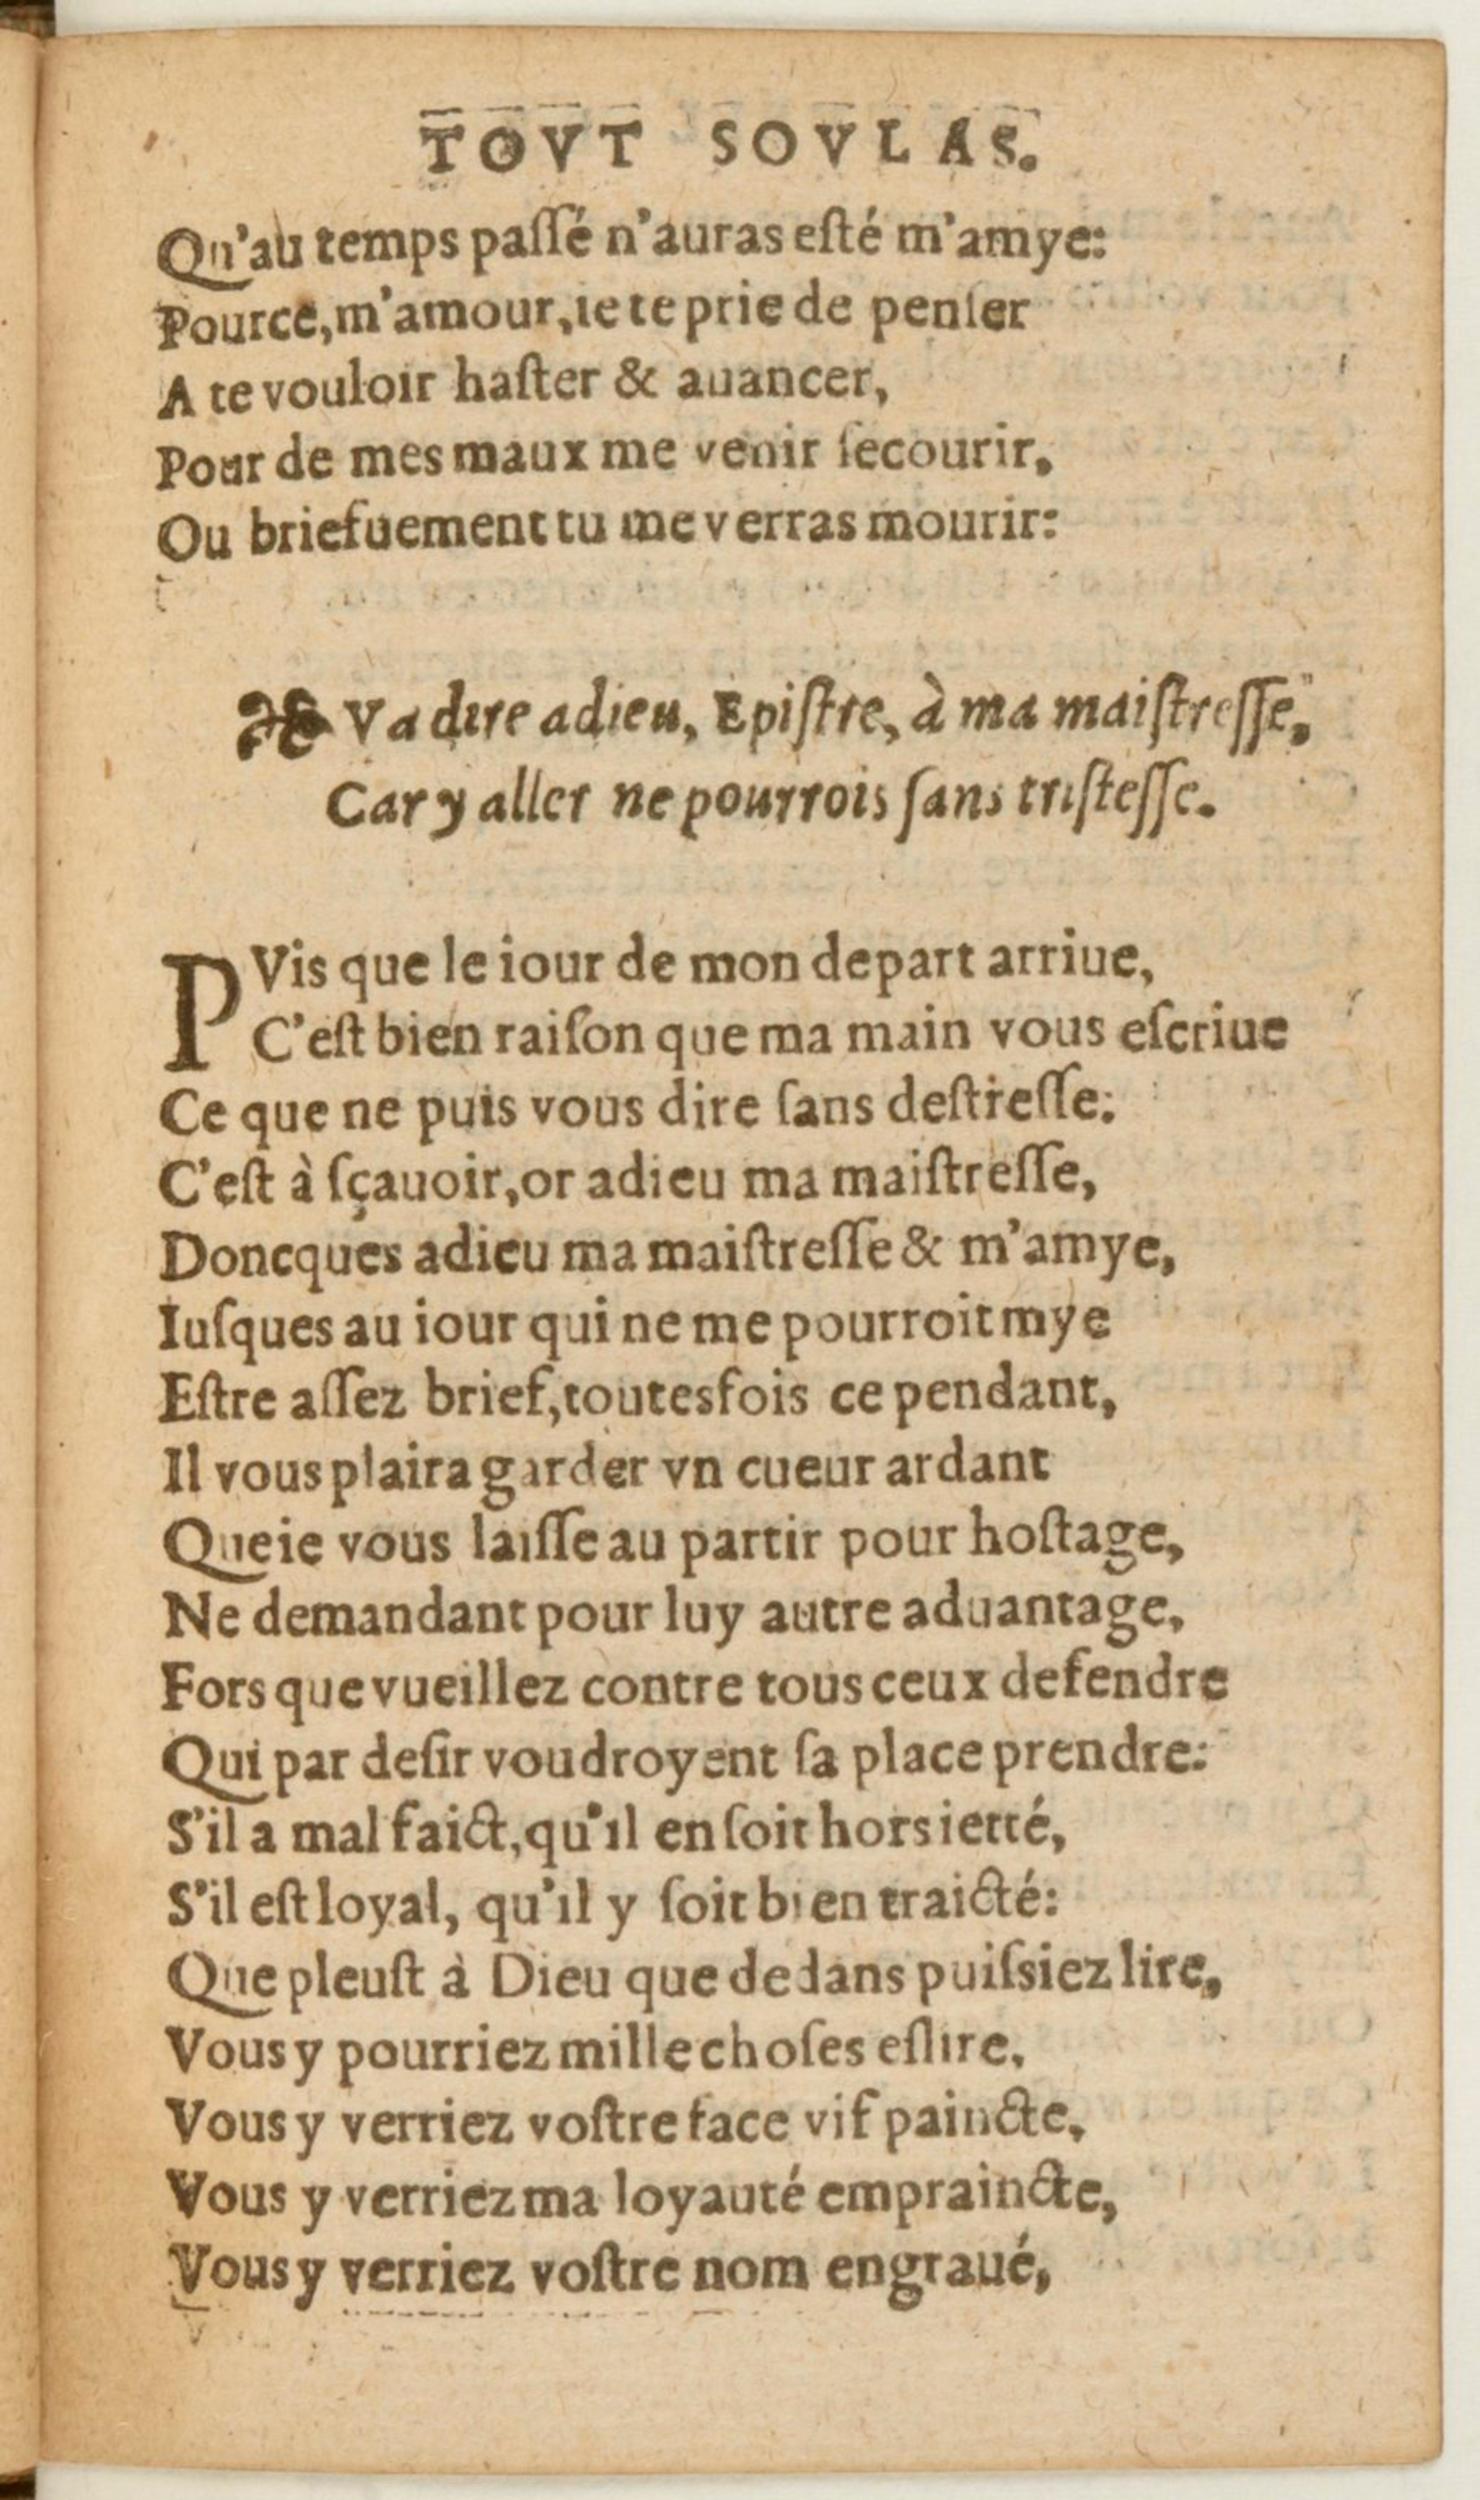 TOVT SOVLAS.
Qu'au temps paſſé n'auras eſté m'amye:
Pource, m'amour, ie te prie de penſer
A te vouloir haſter & auancer,
Pour de mes maux me venir ſecourir,
Ou briefuement tu me verras mourir:
Va dire adieu, Epiſtre, à ma maiſtreſſe,
Car y aller ne pourrois ſans triſteſſe.
PVis que le iour de mon depart arriue,
C'eſt bien raiſon que ma main vous eſcriue
Ce que ne puis vous dire ſans deſtreſſe:
C'eſt à ſçauoir, or adieu ma maiſtreſſe,
Doncques adieu ma maiſtreſſe & m'amye,
Iuſques au iour qui ne me pourroit mye
Eſtre aſſez brief, toutesfois ce pendant,
Il vous plaira garder vn cueur ardant
Que ie vous laiſſe au partir pour hoſtage,
Ne demandant pour luy autre aduantage,
Fors que vueillez contre tous ceux defendre
Qui par deſir voudroyent ſa place prendre:
S'il a mal faict, qu'il en ſoit hors ietté,
S'il eſt loyal, qu'il y ſoit bien traicté:
Que pleuſt à Dieu que dedans puiſsiez lire,
Vous y pourriez mille choſes eſlire,
Vous y verriez voſtre face vif paincte,
Vous y verriez ma loyauté empraincte,
Vous y verriez voſtre nom engraué,